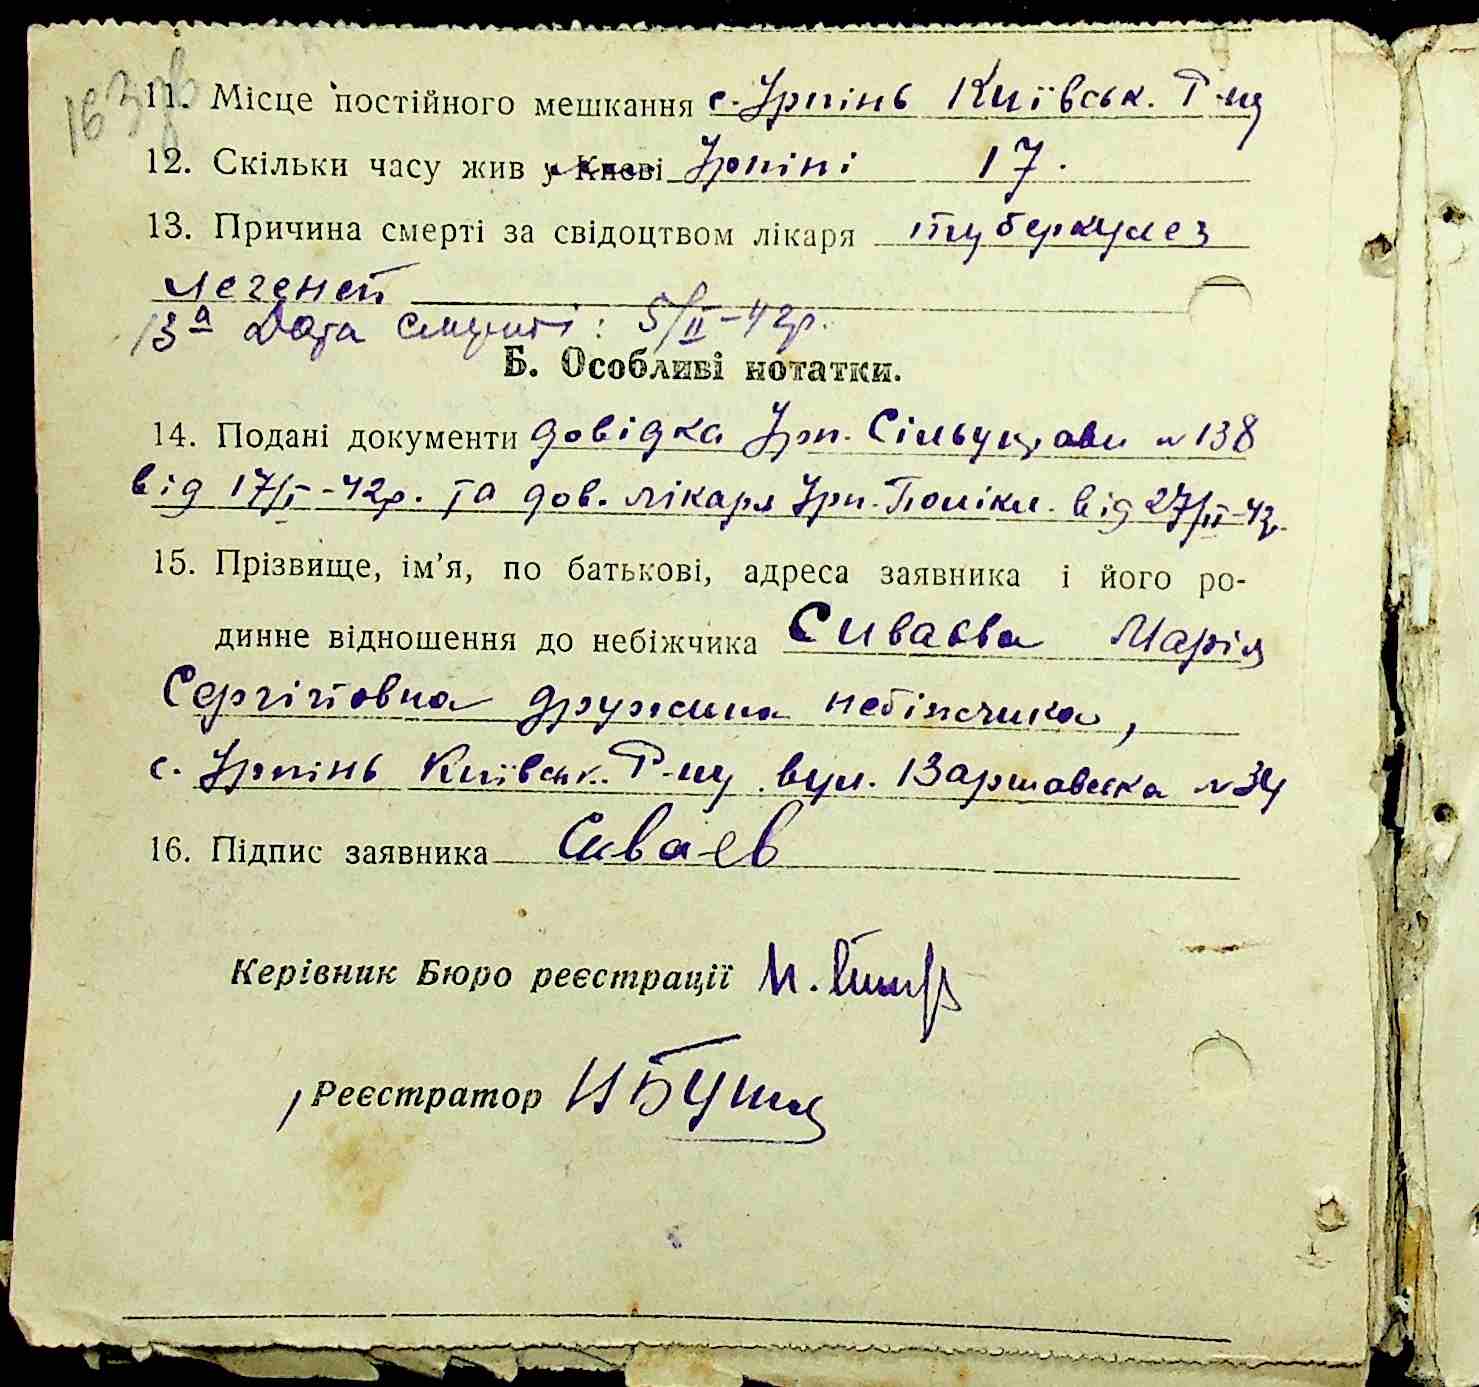 163зв
11. Місце постійного мешкання с. Ірпінь Київськ. Р-ну
12. Скільки часу жив у Києві Ірпіні 17.
13. Причина смерті за свідоцтвом лікаря туберкулез
легеней
13а Дата смерті: 5/II-42р.
Б. Особливі нотатки.
14. Подані документи довідка Ірп. Сільуправи №138
від 17/I-42р. та дов. лікаря Ірп. Полікл. від 27/II-42р.
15. Прізвище, ім’я, по батькові, адреса заявника і його ро-
динне відношення до небіжчика Сиваєва Марія
Сергіївна дружина небіжчика,
с. Ірпінь Київськ. Р-ну вул. Варшавська №34
16. Підпис заявника Сиваев
Керівник Бюро реєстрації
Реєстратор